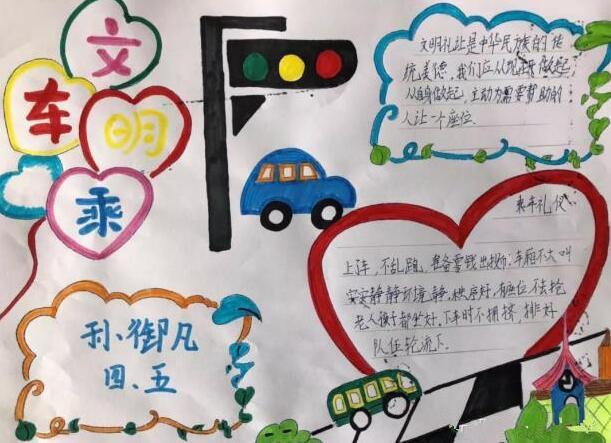 文
明
乘
车
文明礼让是中华民族的传
统美德,我们应从现在做起,
从自身做起,主动为需要帮助的
人让一个座位.
乘车礼仪
上车,不乱跑,准备零钱出
车厢不大叫
安安静静环境静.秩序好,有座位不去抢
老人孩子都坐好.下车时不拥挤,排好
队伍轮流下.
孙御凡
四、五